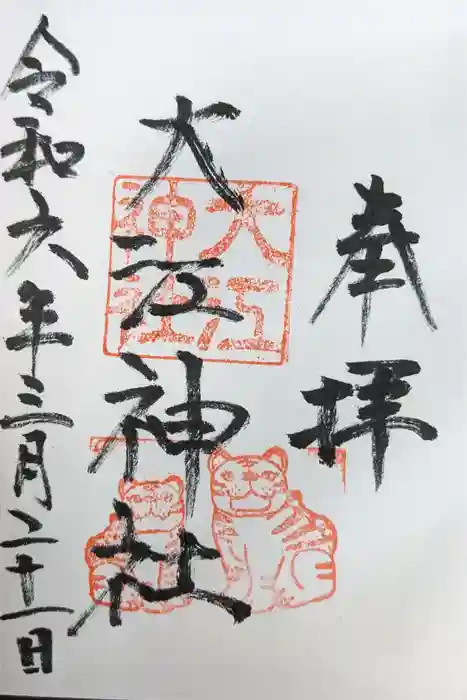 奉拝
大江神社
大江神社
令和六年三月二十一日